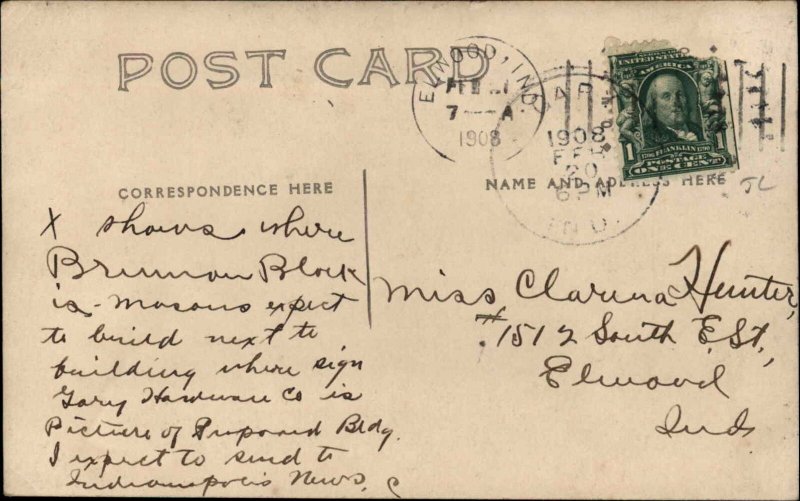 POST CARD
ELWOOD, IND.
FEB 21
7—A
1908
GARY
1908
FEB
20
6 PM
IND.
UNITED STATES OF
AMERICA
1 1790 FRANKLIN 1790 1
POSTAGE
ONE CENT
CORRESPONDENCE HERE
NAME AND ADDRESS HERE
JL
X shows where
Block
is - Masons expect
to build next to
building where sign
Gary Hardware Co is
Picture of Proposed Bldg.
I expect to send to
Indianapolis News. C
Miss Hunter,
#1512 South E. St.,
Elwood
Ind